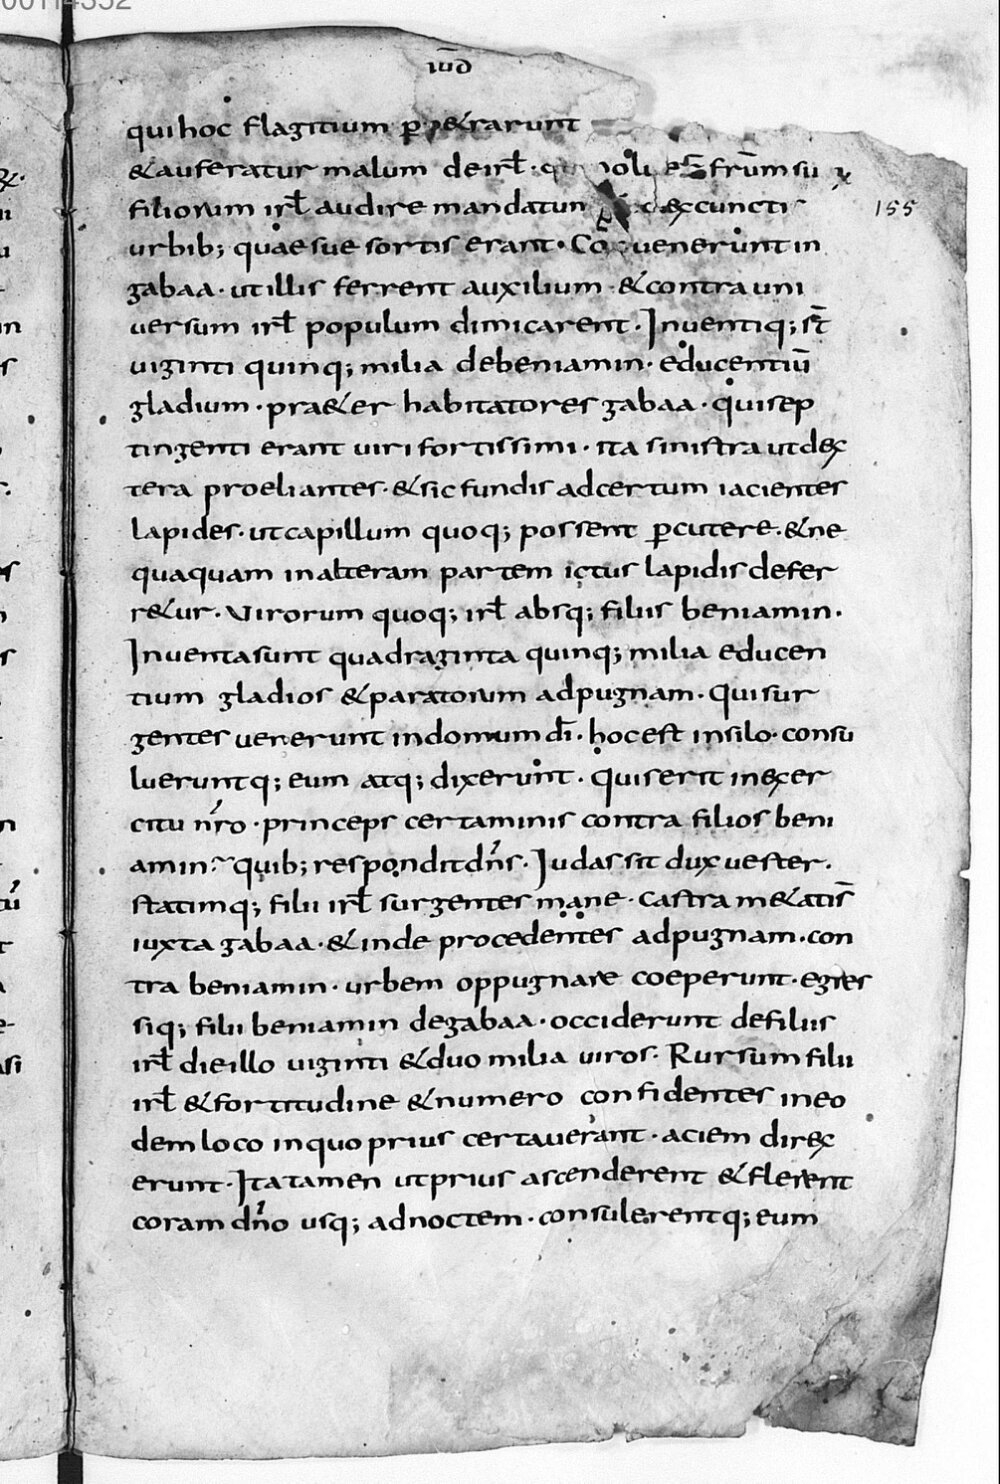 00114352
iud̄
qui hoc flagitium p̲&rarunt
& auferatur malum de irł. noluer̄ fr̄um suoꝝ
filiorum irł audire mandatum sed ex cunctis
urbib; quae sue sortis erant. Conuenerunt in
gabaa. ut illis ferrent auxilium. & contra uni
uersum irł populum dimicarent. Inuentiq; st̄
uiginti quinq; milia de beniamin. educentiū
gladium. pra&er habitatores gabaa. qui sep
tingenti erant uiri fortissimi. ita sinistra ut dex
tera proeliantes. & sic fundis ad certum iacientes
lapides. ut capillum quoq; possent ꝑcutere. & ne
quaquam in alteram partem ictus lapidis defer
r&ur. Virorum quoq; irł absq; filiis beniamin.
Inuenta sunt quadraginta quinq; milia educen
tium gladios & paratorum ad pugnam. qui sur
gentes uenerunt in domum dī. hoc est in silo. consu
lueruntq; eum atq; dixerunt. quis erit in exer
citu nr̄o. princeps certaminis contra filios beni
amin? quib; respondit dn̄s. Iudas sit dux uester.
statimq; filii irł surgentes mane. castra m&atis̄
iuxta gabaa. & inde procedentes ad pugnam. con
tra beniamin. urbem oppugnare coeperunt. egres
siq; filii beniamin de gabaa. occiderunt de filiis
irł die illo uiginti & duo milia uiros. Rursum filii
irł & fortitudine & numero confidentes in eo
dem loco in quo prius certauerant. aciem direx
erunt. Ita tamen ut prius ascenderent & flerent
coram dn̄o usq; ad noctem. consulerentq; eum
155